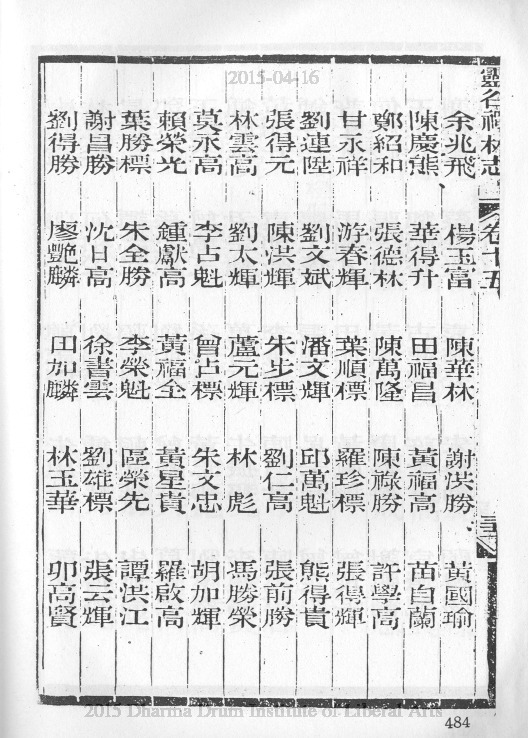 2015-04-16
靈谷禪林志 卷十五 三十
余兆飛 楊玉富 陳華林 謝洪勝 黃國瑜
陳慶熊 華得升 田福昌 黃福高 苗自蘭
鄭紹和 張德林 陳萬隆 陳祿勝 許學高
甘永祥 游春輝 葉順標 羅珍標 張得輝
劉連陞 劉文斌 潘文輝 邱萬魁 熊得貴
張得元 陳洪輝 朱步標 劉仁高 張前勝
林雲高 劉太輝 蘆元輝 林彪 馮勝榮
莫永高 李占魁 曾占標 朱文忠 胡加輝
賴榮光 鍾獻高 黃福全 黃星貴 羅啟高
葉勝標 朱全勝 李榮魁 區榮先 譚洪江
謝昌勝 沈日高 徐書雲 劉雄標 張云輝
劉得勝 廖艷麟 田加麟 林玉華 卯高賢
2015 Dharma Drum Institute of Liberal Arts
484